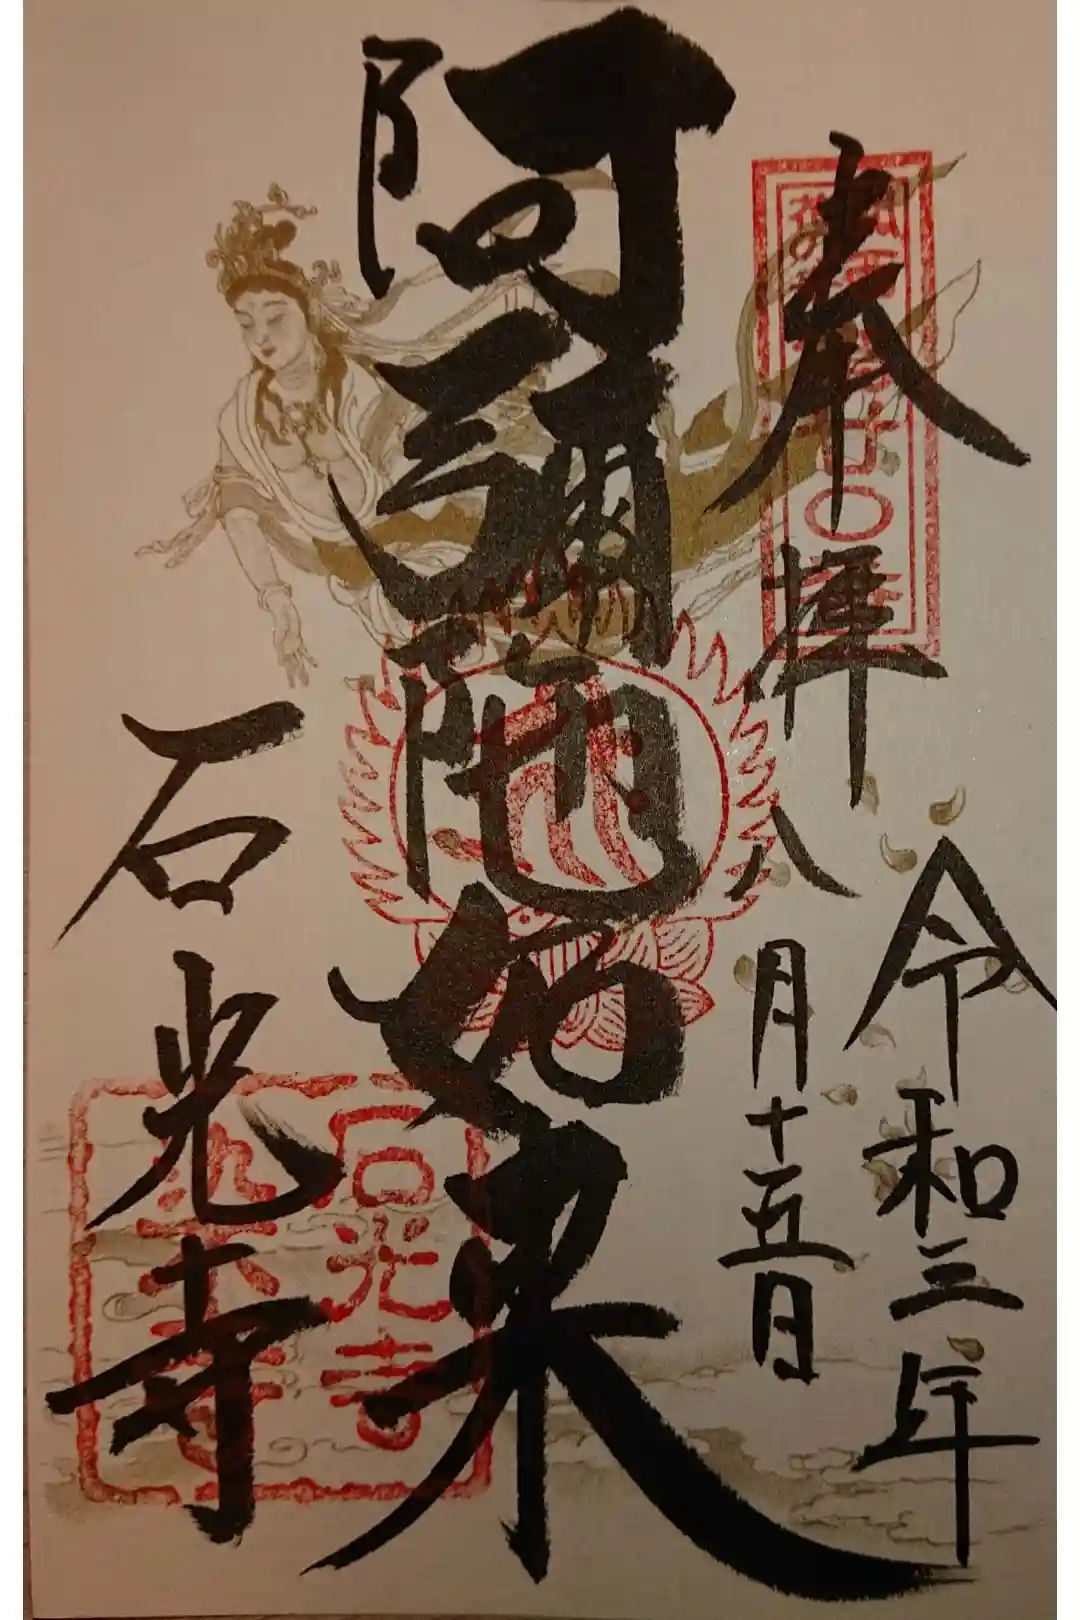 奉拝
令和三年
八月十五日
阿彌陀如来
石光寺
石光寺